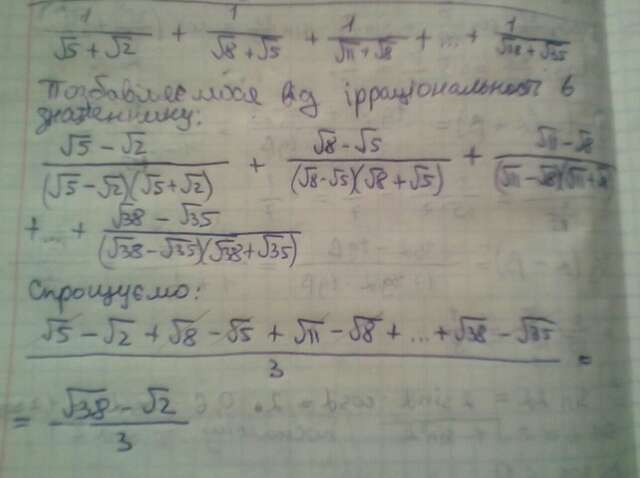 1/(√5 + √2) + 1/(√8 + √5) + 1/(√11 + √8) + ... + 1/(√38 + √35)
Позбавляємося від ірраціональності в
знаменнику:
(√5 − √2)/((√5 − √2)(√5 + √2)) + (√8 − √5)/((√8 − √5)(√8 + √5)) + (√11 − √8)/((√11 − √8)(√11 + √8))
+ ... + (√38 − √35)/((√38 − √35)(√38 + √35))
Спрощуємо:
(√5 − √2 + √8 − √5 + √11 − √8 + ... + √38 − √35)/3 =
= (√38 − √2)/3